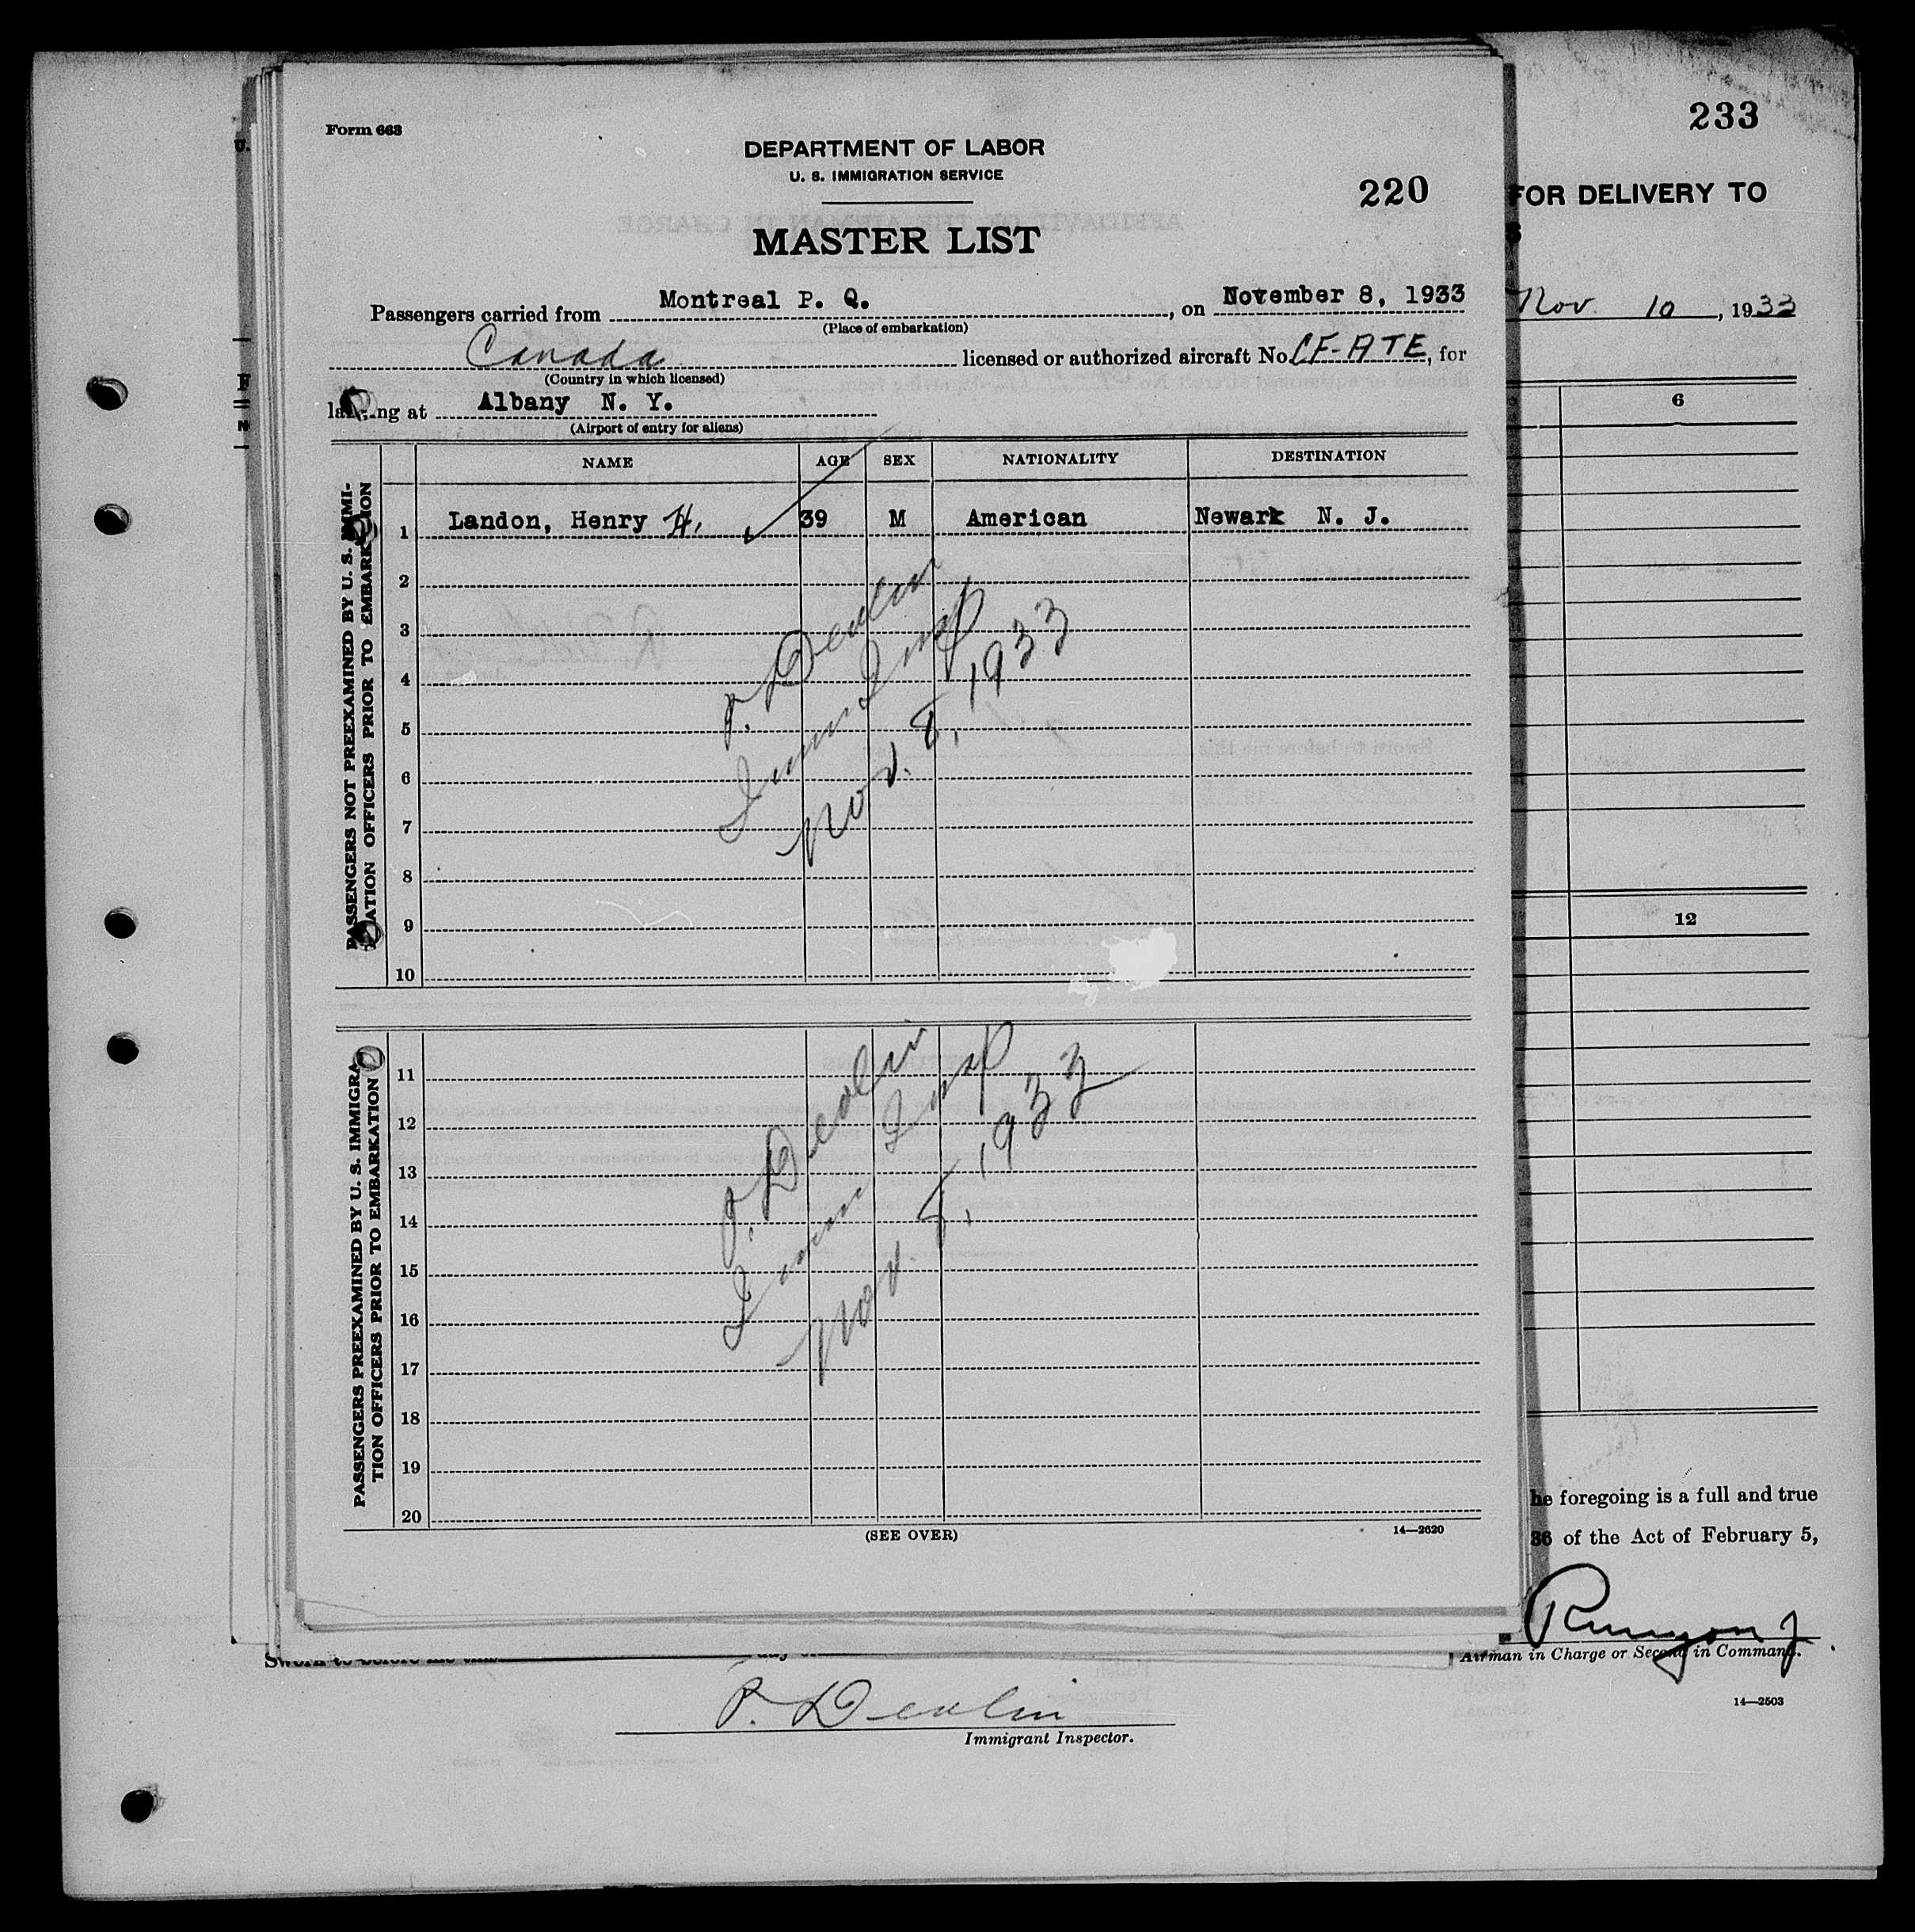 Form 663
DEPARTMENT OF LABOR
U. S. IMMIGRATION SERVICE
220
MASTER LIST
Passengers carried from Montreal P. Q., on November 8, 1933
(Place of embarkation)
Canada licensed or authorized aircraft No. CF-ATE, for
(Country in which licensed)
landing at Albany N. Y.
(Airport of entry for aliens)
NAME AGE SEX NATIONALITY DESTINATION
PASSENGERS NOT PREEXAMINED BY U. S. IMMI-
GRATION OFFICERS PRIOR TO EMBARKATION
1 Landon, Henry H. 39 M American Newark N. J.
2
3
4
5
6
7
8
9
10
P. Devlin
Imm Insp
Nov. 8, 1933
PASSENGERS PREEXAMINED BY U. S. IMMIGRA-
TION OFFICERS PRIOR TO EMBARKATION
11
12
13
14
15
16
17
18
19
20
P. Devlin
Imm Insp
Nov. 8, 1933
(SEE OVER)
14—2620
233
FOR DELIVERY TO
S
Nov. 10, 1933
6
12
he foregoing is a full and true
36 of the Act of February 5,
Runyon J
Airman in Charge or Second in Command.
14—2503
Sworn to before me this
day of
P. Devlin
Immigrant Inspector.